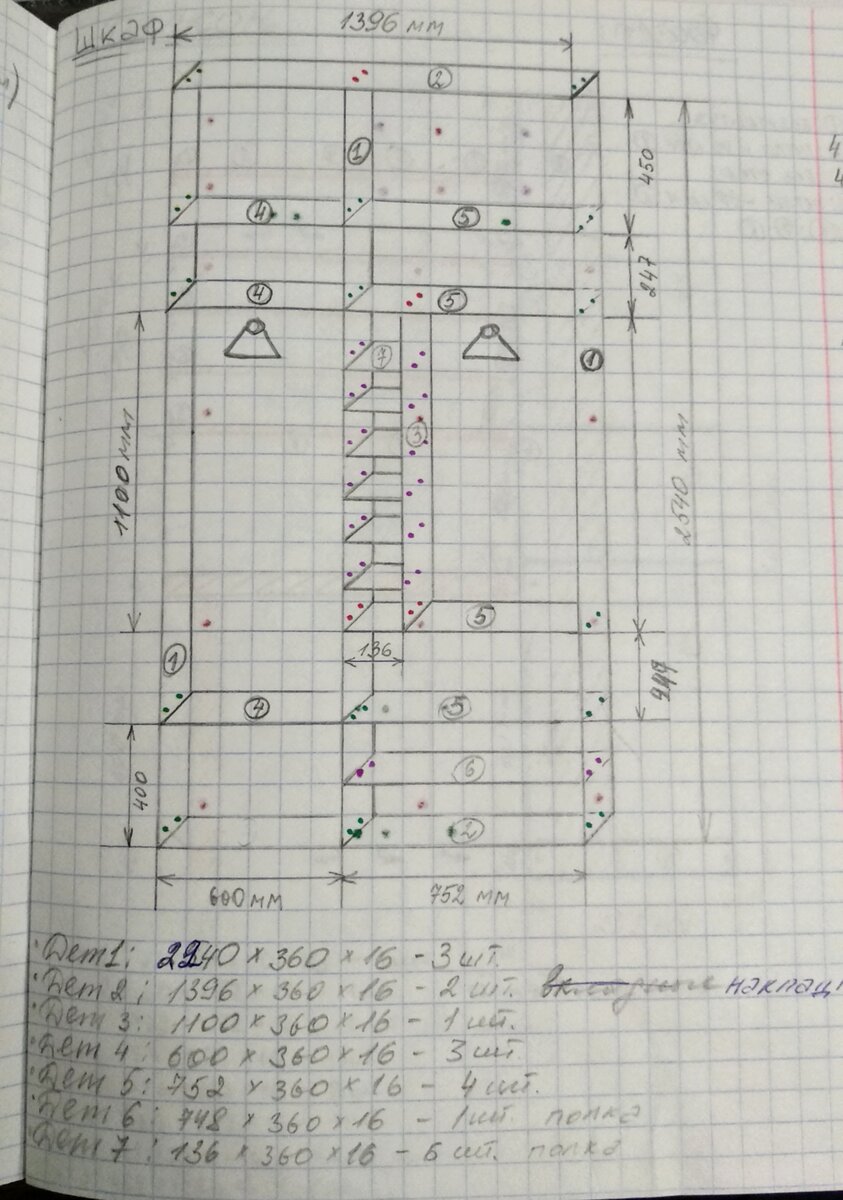 шкаф
1396 мм
2
1
450
4
5
247
4
5
7
1
3
1100 мм
2540 мм
5
136
1
4
5
400
6
2
600 мм
752 мм
Дет 1: 2240 × 360 × 16 - 3 шт.
Дет 2: 1396 × 360 × 16 - 2 шт. наклад
Дет 3: 1100 × 360 × 16 - 1 шт.
Дет 4: 600 × 360 × 16 - 3 шт
Дет 5: 752 × 360 × 16 - 4 шт.
Дет 6: 748 × 360 × 16 - 1 шт. полка
Дет 7: 136 × 360 × 16 - 6 шт. полка